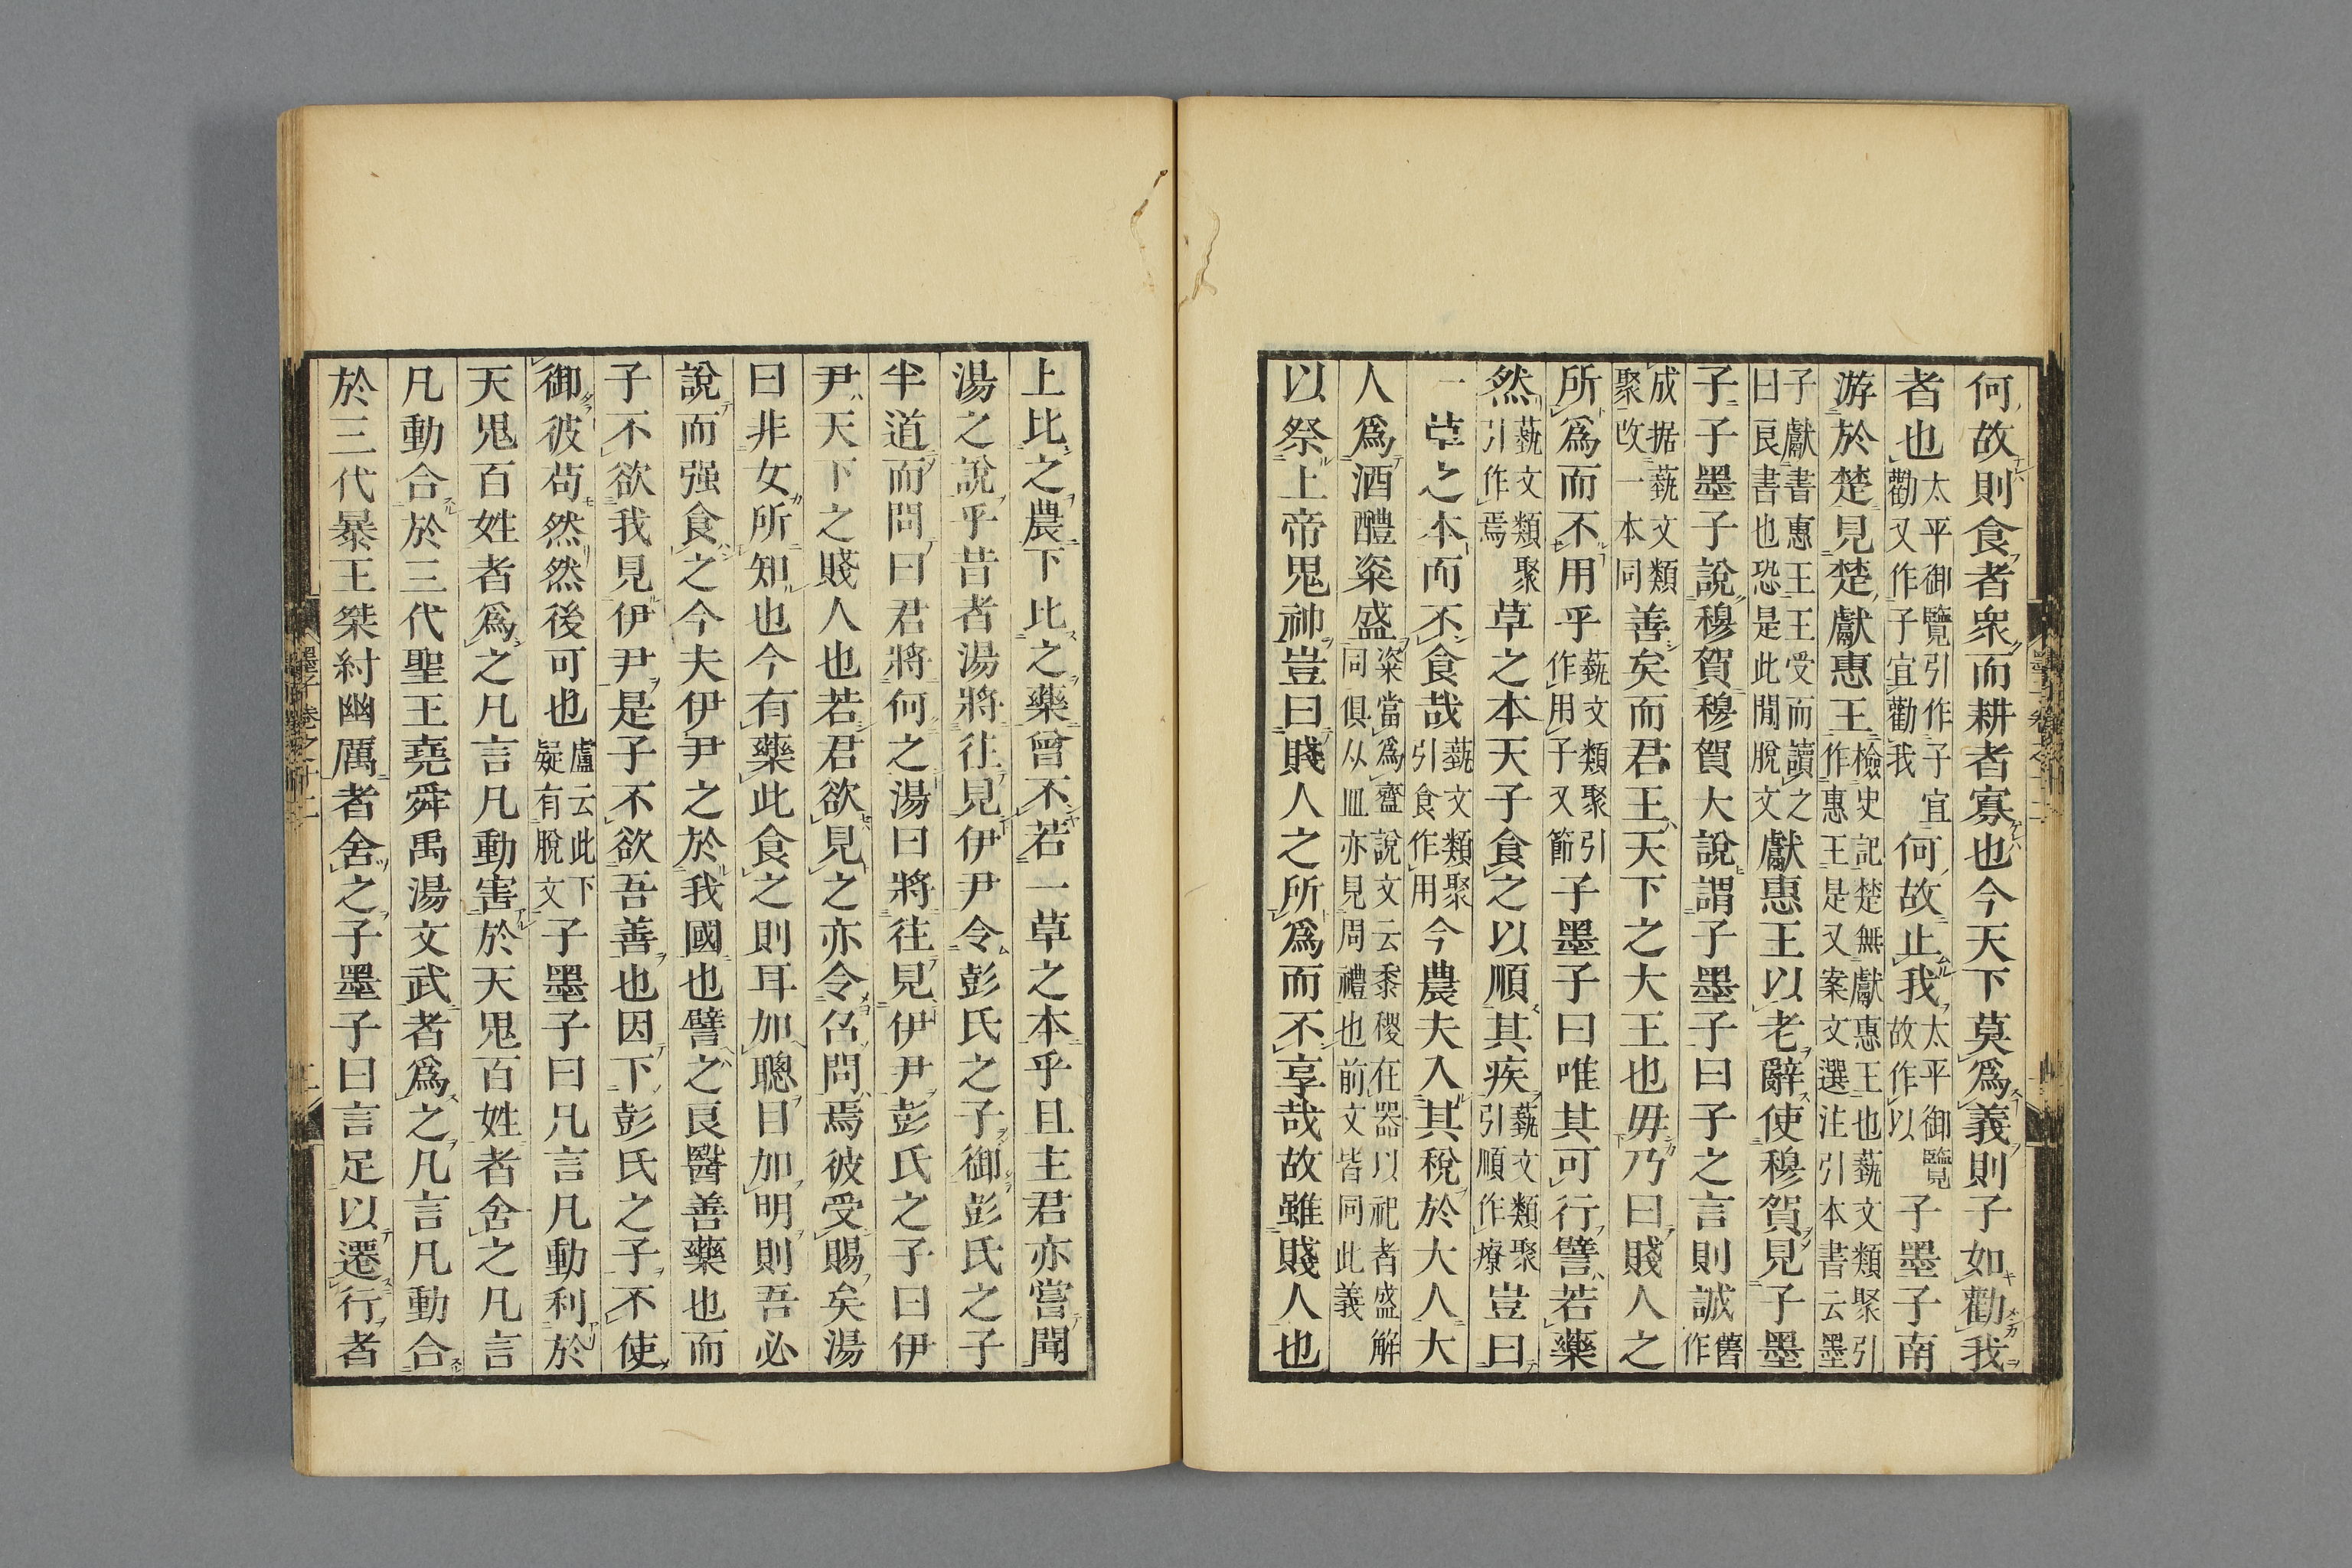 何故則食者衆而耕者寡也今天下莫爲義則子如勸我
者也太平御覽引作子宜勸又作子宜勸我何故止我太平御覽故作以子墨子南
游於楚見楚獻惠王檢史記楚無獻惠王也蓺文類聚引作惠王是又案文選注引本書云墨
子獻書惠王王受而讀之曰良書也恐是此閒脫文獻惠王以老辭使穆賀見子墨
子子墨子說穆賀穆賀大說謂子墨子曰子之言則誠舊作
成据蓺文類聚改一本同善矣而君王天下之大王也毋乃曰賤人之
所爲而不用乎蓺文類聚引作用子又節子墨子曰唯其可行譬若藥
然蓺文類聚引作焉草之本天子食之以順其疾蓺文類聚引順作療豈曰
一草之本而不食哉蓺文類聚引食作用今農夫入其稅於大人大
人爲酒醴粢盛粢當爲齍說文云黍稷在器以祀者盛解同俱从皿亦見周禮也前文皆同此義
以祭上帝鬼神豈曰賤人之所爲而不享哉故雖賤人也
上比之農下比之藥曾不若一草之本乎且主君亦嘗聞
湯之說乎昔者湯將往見伊尹令彭氏之子御彭氏之子
半道而問曰君將何之湯曰將往見伊尹彭氏之子曰伊
尹天下之賤人也若君欲見之亦令召問焉彼受賜矣湯
曰非女所知也今有藥此食之則耳加聰目加明則吾必
說而强食之今夫伊尹之於我國也譬之良醫善藥也而
子不欲我見伊尹是子不欲吾善也因下彭氏之子不使
御彼苟然然後可也盧云此下疑有脫文子墨子曰凡言凡動利於
天鬼百姓者爲之凡言凡動害於天鬼百姓者舍之凡言
凡動合於三代聖王堯舜禹湯文武者爲之凡言凡動合
於三代暴王桀紂幽厲者舍之子墨子曰言足以遷行者
墨子卷之十二